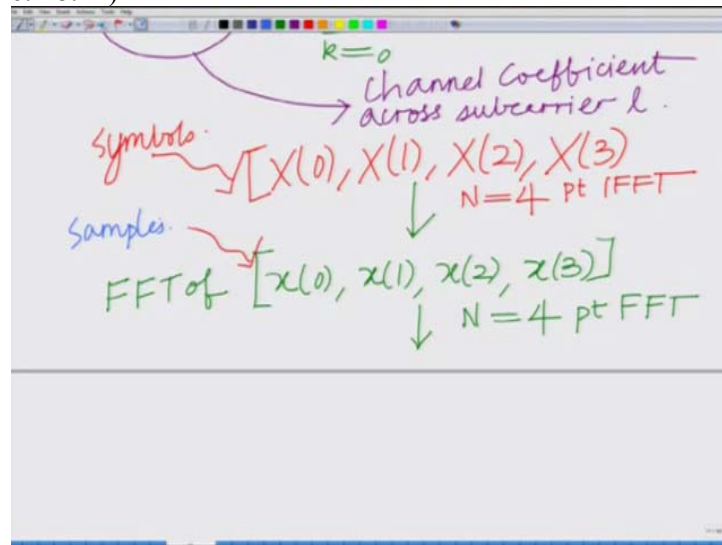 k=0
Channel Coefficient
across subcarrier l.
Symbols.
[X(0), X(1), X(2), X(3)
N=4 pt IFFT
Samples.
FFT of [x(0), x(1), x(2), x(3)]
N=4 pt FFT